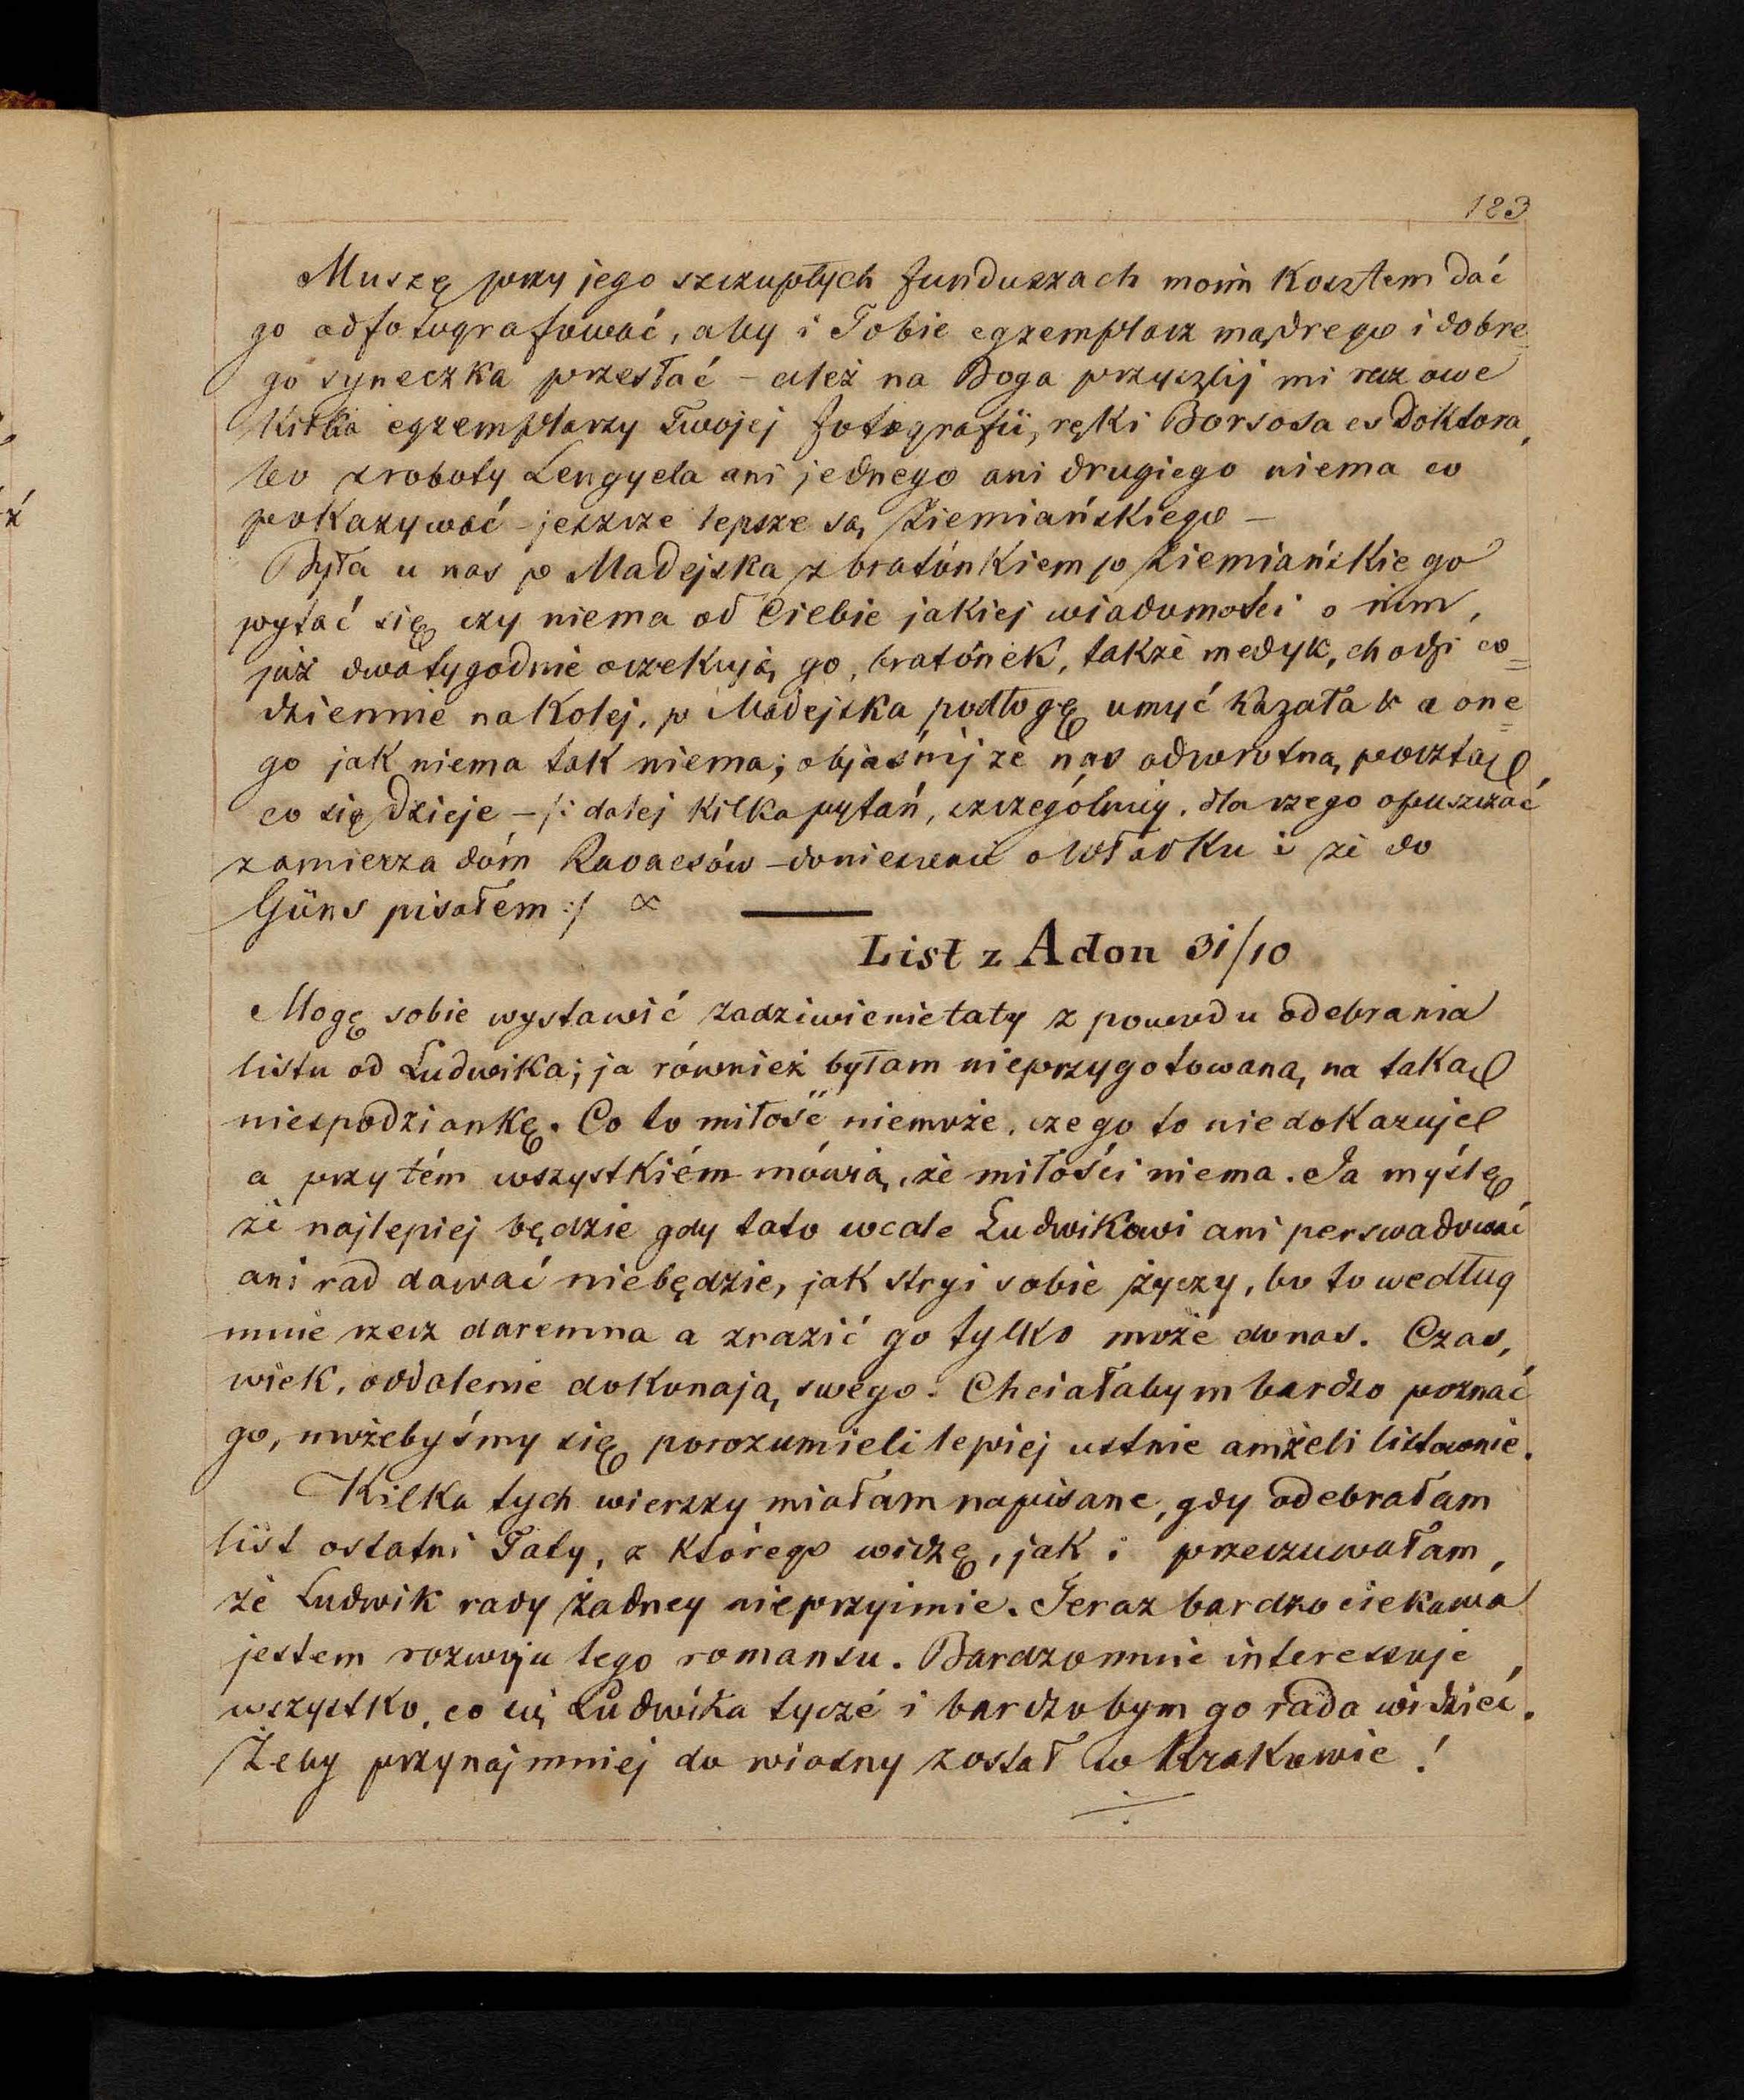 183
Muszę przy jego szczupłych funduszach moim kosztem dać
go odfotografować, aby i Tobie egzemplarz mądrego i dobre
go syneczka przesłać – ależ na Boga przyszlij mi raz owe
kilka egzemplarzy Twojej fotografii, ręki Borsosa es Doktora,
bo z roboty Lengyela ani jednego ani drugiego niema co
pokazywać – jeszcze lepsze są Ziemiańskiego –
Była u nas p Madejska z bratónkiem p Ziemiańskiego
pytać się czy niema od Ciebie jakiej wiadomości o nim,
już dwa tygodnie oczekują go, bratónek, także medyk, chodzi co=
dziennie na Kolej, p Madejska podłogę umyć kazała & a one=
go jak niema tak niema; objaśnij że nas odwrotną pocztą,
co się dzieje – /: dalej kilka pytań, szczególniej, dla czego opuszczać
zamierza dóm Kavacsów – doniesienie o Władku i że do
Güns pisałem :/ ∝
List z Adon 31/10
Mogę sobie wystawić zadziwienie taty z powodu odebrania
listu od Ludwika; ja również byłam nieprzygotowaną na taką
niespodziankę. Co to miłość niemoże, czego to niedokazuje
a przytém wszystkiém mówią, że miłości niema. Ja myślę
że najlepiej będzie gdy tato wcale Ludwikowi ani perswadować
ani rad dawać niebędzie, jak stryj sobie życzy, bo to według
mnie rzecz daremna a zrazić go tylko może do nas. Czas,
wiek, oddalenie dokonają swego. Chciałabym bardzo poznać
go, możebyśmy się porozumieli lepiej ustnie aniżeli listownie.
Kilka tych wierszy miałam napisane, gdy odebrałam
list ostatni Taty, z którego widzę, jak i przeczuwałam,
że Ludwik rady żadney nieprzyimie. Teraz bardzo ciekawa
jestem rozwoju tego romansu. Bardzo mnie interessuje
wszystko, co się Ludwika tyczé i bardzobym go rada widzieć.
Żeby przynajmniej do wiosny został w Krakowie!